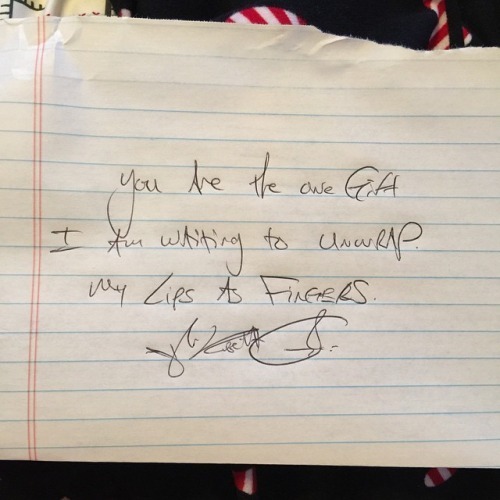 you Are the one Gift
I Am wAiting to UNWRAP.
my Lips As FINGERS.